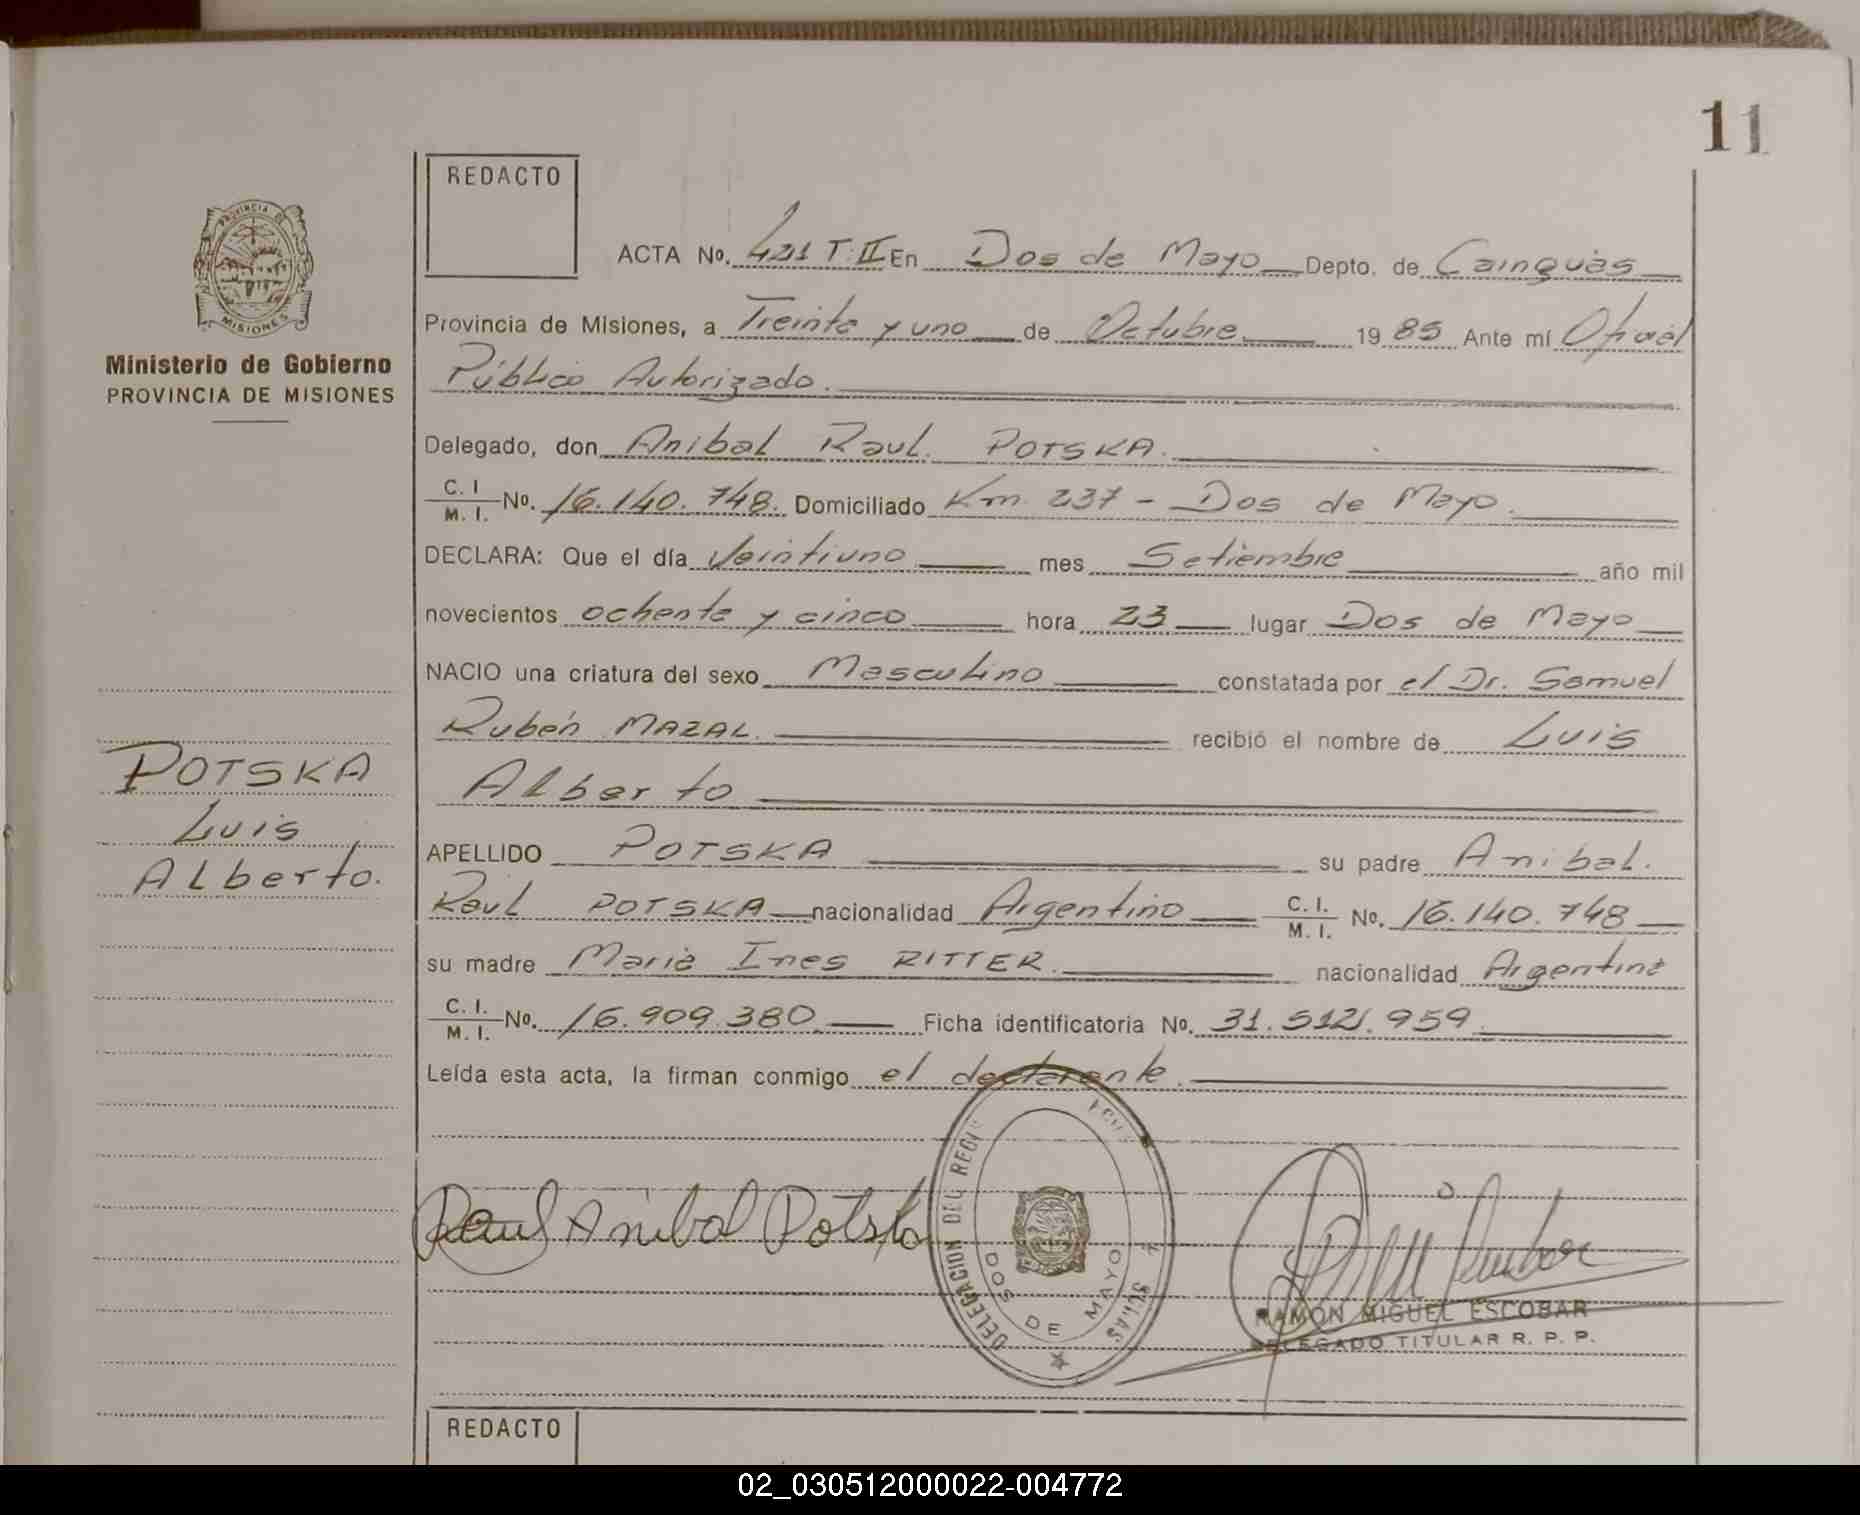 11
REDACTO
PROVINCIA DE
MISIONES
Ministerio de Gobierno
PROVINCIA DE MISIONES
ACTA No. 421 T: II En Dos de Mayo Depto. de Cainguàs
Provincia de Misiones, a Treinta y uno de Octubre 1985 Ante mí Oficial
Público Autorizado.
Delegado, don Anibal Raul. POTSKA.
C. I
M. I. No. 16.140.748. Domiciliado Km. 237 - Dos de Mayo.
DECLARA: Que el día Veintiuno mes Setiembre año mil
novecientos ochenta y cinco hora 23 lugar Dos de Mayo
NACIO una criatura del sexo Masculino constatada por el Dr. Samuel
Rubén MAZAL. recibió el nombre de Luis
Alberto
POTSKA
Luis
Alberto.
APELLIDO POTSKA su padre Anibal.
Raúl POTSKA nacionalidad Argentino C. I.
M. I. No. 16.140.748
su madre Maria Ines RITTER. nacionalidad Argentina
C. I.
M. I. No. 16.909.380 Ficha identificatoria No. 31.512.959.
Leída esta acta, la firman conmigo el declarante.
Raul Anibal Potska
DELEGACION DEL
DOS DE MAYO
RAMON MIGUEL ESCOBAR
DELEGADO TITULAR R. P. P.
REDACTO
02_030512000022-004772